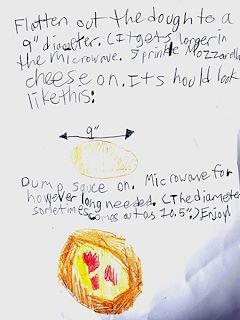 Flatten out the dough to a
9" diameter. (It gets longer in
the microwave. Sprinkle Mozzarella
cheese on. It should look
like this:
9"
Dump sauce on. Microwave for
however long needed. (The diameter
sometimes comes out as 10.5".) Enjoy!